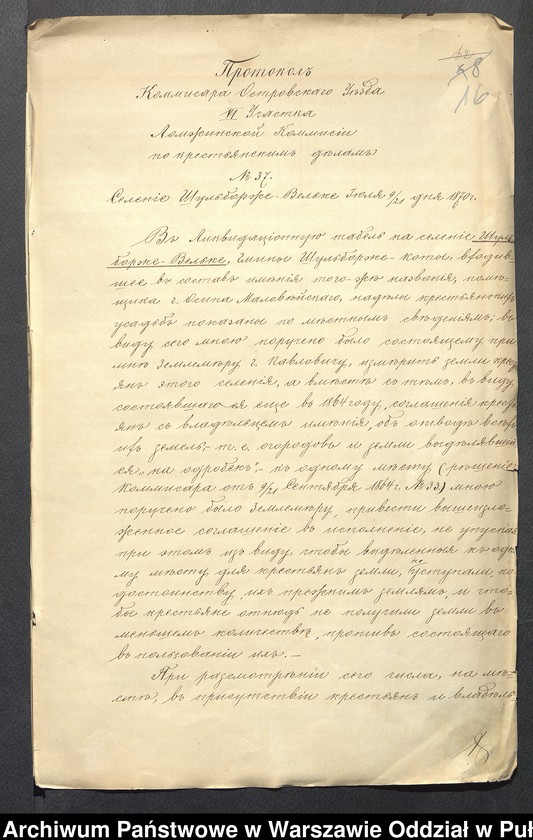 12
68
16
Протоколъ
Коммисара Островскаго Уѣзда
VI Участка
Ломжинской Коммисіи
по крестьянскимъ дѣламъ
№ 37.
Селеніе Шульборже-Вельке Іюля 9/21 дня 1870 г.
Въ Ликвидаціонную табель на селеніе Шуль-
борже-Вельке, гмины Шульборже-Коты, входив-
шее въ составъ имѣнія того-же названія, помѣ-
щика г. Осипа Маловѣйскаго, надѣлы крестьянскихъ
усадьбъ показаны по мѣстнымъ свѣденіямъ; въ
виду сего мною поручено было состоящему при
мнѣ Землемѣру г. Павловичу, измѣрить земли крест
янъ этого селенія, а вмѣстѣ съ тѣмъ, въ виду
состоявшагося еще въ 1864 году, соглашенія крест
янъ съ владѣльцемъ имѣнія, объ отводѣ всѣхъ
ихъ земель,- т. е. огородовъ и земли выдѣлявшей
ся „на одробекъ"- къ одному мѣсту, (рѣшеніе
Коммисара отъ 9/21 Сентября 1864 г. № 33.) мною
поручено было Землемѣру, привести вышеизло-
женное соглашеніе въ исполненіе, не упуская
при этомъ изъ виду, чтобы выдѣленныя къ одно
му мѣсту для крестьянъ земли, не уступали по
достоинству ихъ прежнимъ землямъ, и что-
бы крестьяне отнюдь не получили земли въ
меньшемъ количествѣ, противъ состоящаго
въ пользованіи ихъ.-
При разсмотрѣніи сего числа, на мѣ-
стѣ, въ присутствіи крестьянъ и владѣль
Archiwum Państwowe w Warszawie Oddział w Puł